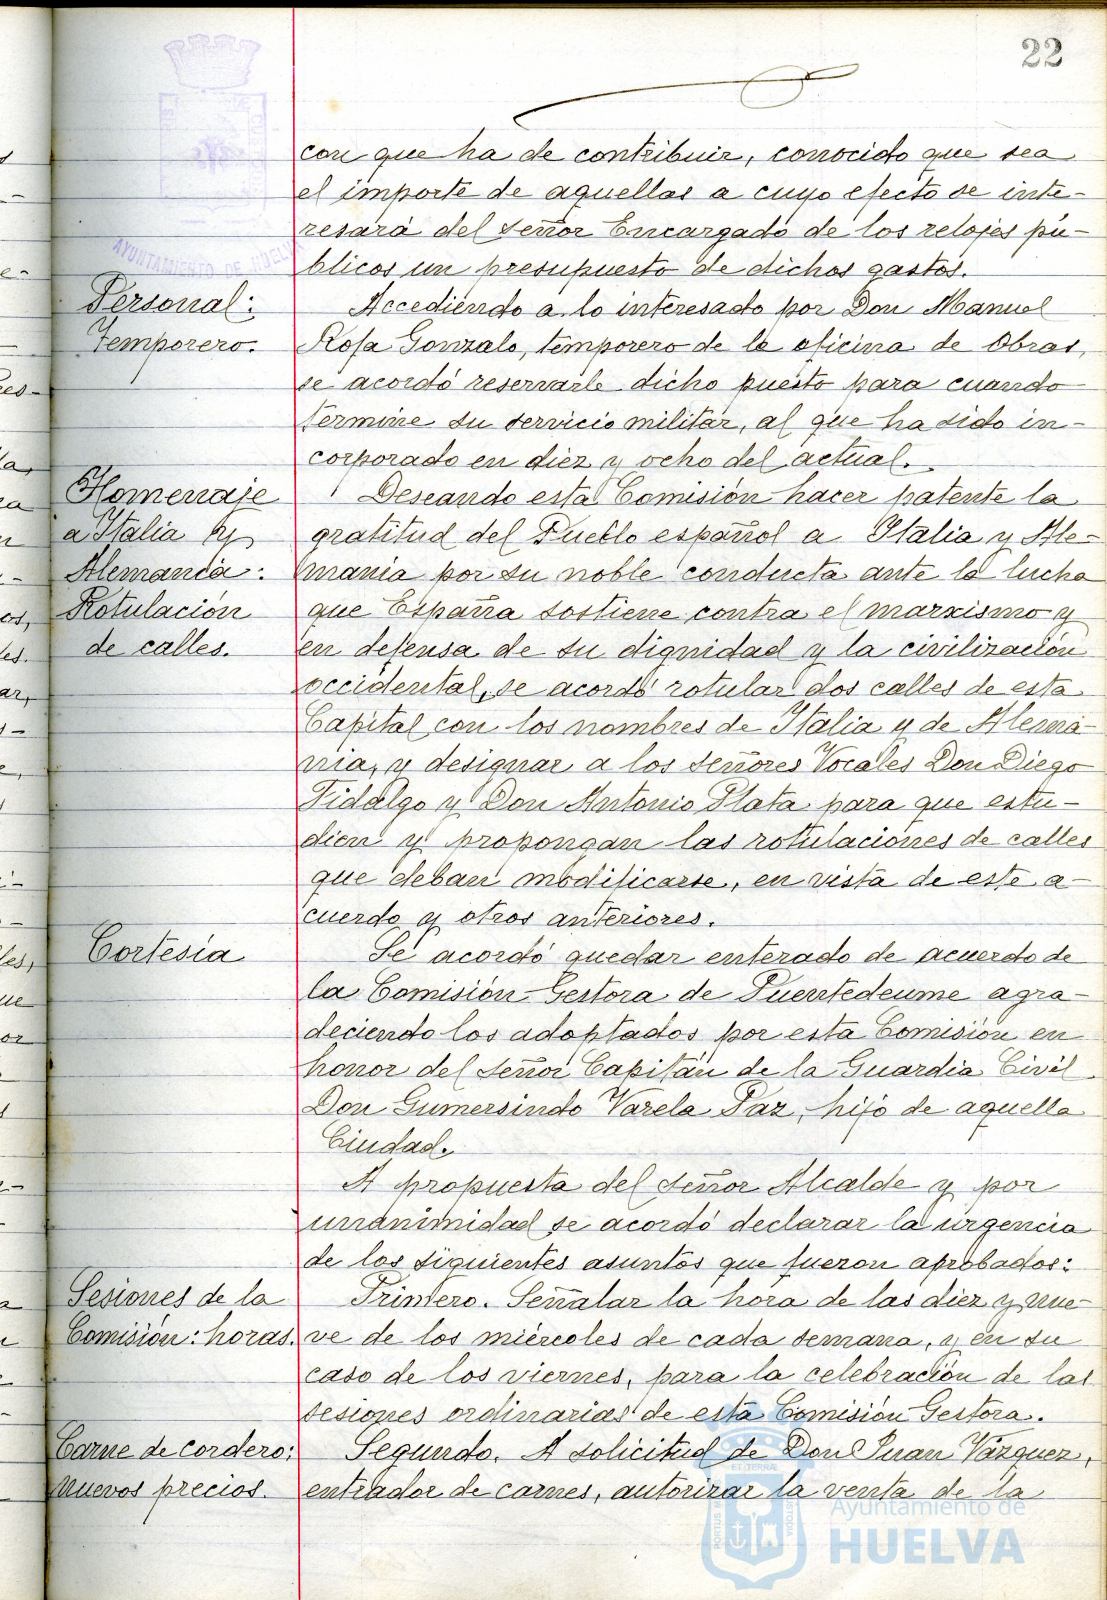 22
con que ha de contribuir, conocido que sea
el importe de aquellas a cuyo efecto se inte-
resará del señor Encargado de los relojes pú-
blicos un presupuesto de dichos gastos.
Personal:
Temporero.
Accediendo a lo interesado por Don Manuel
Rofa Gonzalo, temporero de la oficina de Obras,
se acordó reservarle dicho puesto para cuando
termine su servicio militar, al que ha sido in-
corporado en diez y ocho del actual.
Homenaje
a Italia y
Alemania:
Rotulación
de calles.
Deseando esta Comisión hacer patente la
gratitud del Pueblo español a Italia y Ale-
mania por su noble conducta ante la lucha
que España sostiene contra el marxismo y
en defensa de su dignidad y la civilización
occidental, se acordó rotular dos calles de esta
Capital con los nombres de Italia y de Alema-
nia, y designar a los señores Vocales Don Diego
Fidalgo y Don Antonio Plata para que estu-
dien y propongan las rotulaciones de calles
que deban modificarse, en vista de este a-
cuerdo y otros anteriores.
Cortesía
Se acordó quedar enterado de acuerdo de
la Comisión Gestora de Puentedeume agra-
deciendo los adoptados por esta Comisión en
honor del señor Capitán de la Guardia Civil
Don Gumersindo Varela Paz, hijo de aquella
Ciudad.
A propuesta del señor Alcalde y por
unanimidad se acordó declarar la urgencia
de los siguientes asuntos que fueron aprobados:
Sesiones de la
Comisión: horas.
Primero. Señalar la hora de las diez y nue-
ve de los miércoles de cada semana, y en su
caso de los viernes, para la celebración de las
sesiones ordinarias de esta Comisión Gestora.
Carne de cordero:
nuevos precios.
Segundo. A solicitud de Don Juan Vázquez,
entrador de carnes, autorizar la venta de la
AYUNTAMIENTO DE HUELVA
Ayuntamiento de
HUELVA